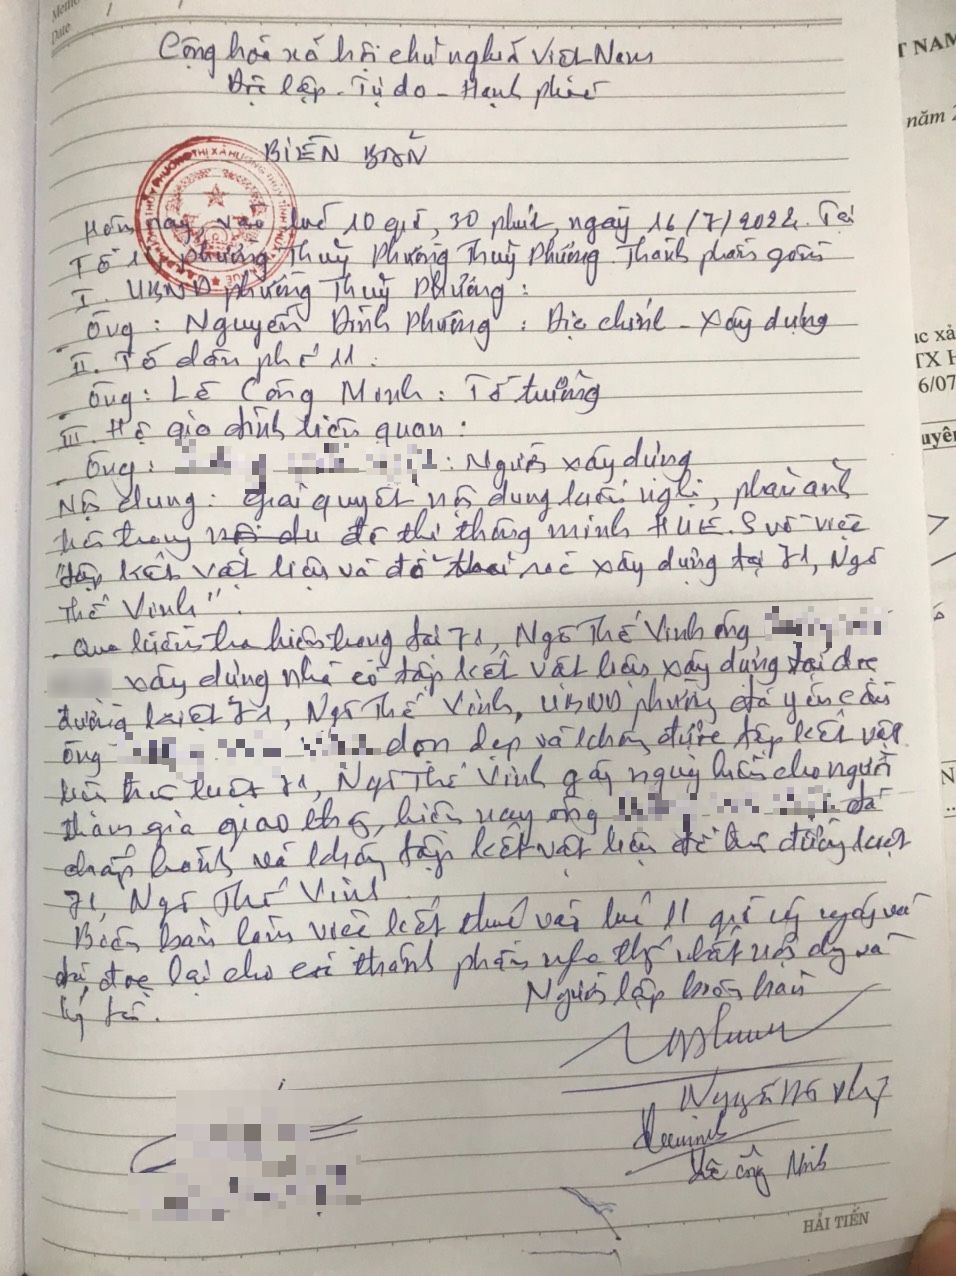 Cộng hoà xã hội chủ nghĩa Việt Nam
Độc lập - Tự do - Hạnh phúc
BIÊN BẢN
Hôm nay, vào lúc 10 giờ, 30 phút, ngày 16/7/2022. Tại
Tổ 11 phường Thuỷ Phương Thuỷ Phương. Thành phần gồm
I. UBND phường Thuỷ Phương:
Ông: Nguyễn Đình Phương: Địa chính - xây dựng
II. Tổ dân phố 11:
Ông: Lê Công Minh: Tổ trưởng
III. Hộ gia đình liên quan:
Ông: : Người xây dựng
Nội dung: Giải quyết nội dung kiến nghị, phản ánh
trong đô thị thông minh HUE.S về việc
"tập kết vật liệu và đổ xây dựng tại 71, Ngô
Thế Vinh".
- Qua kiểm tra hiện trạng tại 71, Ngô Thế Vinh ông
xây dựng nhà có tập kết vật liệu xây dựng tại dọc
đường kiệt 71, Ngô Thế Vinh, UBND phường đã yêu cầu
ông dọn dẹp và không được tập kết vật
liệu kiệt 71, Ngô Thế Vinh gây nguy hiểm cho người
tham gia giao thông, hiện nay ông đã
chấp hành và không tập kết vật liệu đường kiệt
71, Ngô Thế Vinh
Biên bản làm việc kết thúc vào lúc 11 giờ cùng ngày và
đã đọc lại cho các thành phần nghe thống nhất nội dung và
ký tên.
Người lập biên bản
Lê Công Minh
HẢI TIẾN